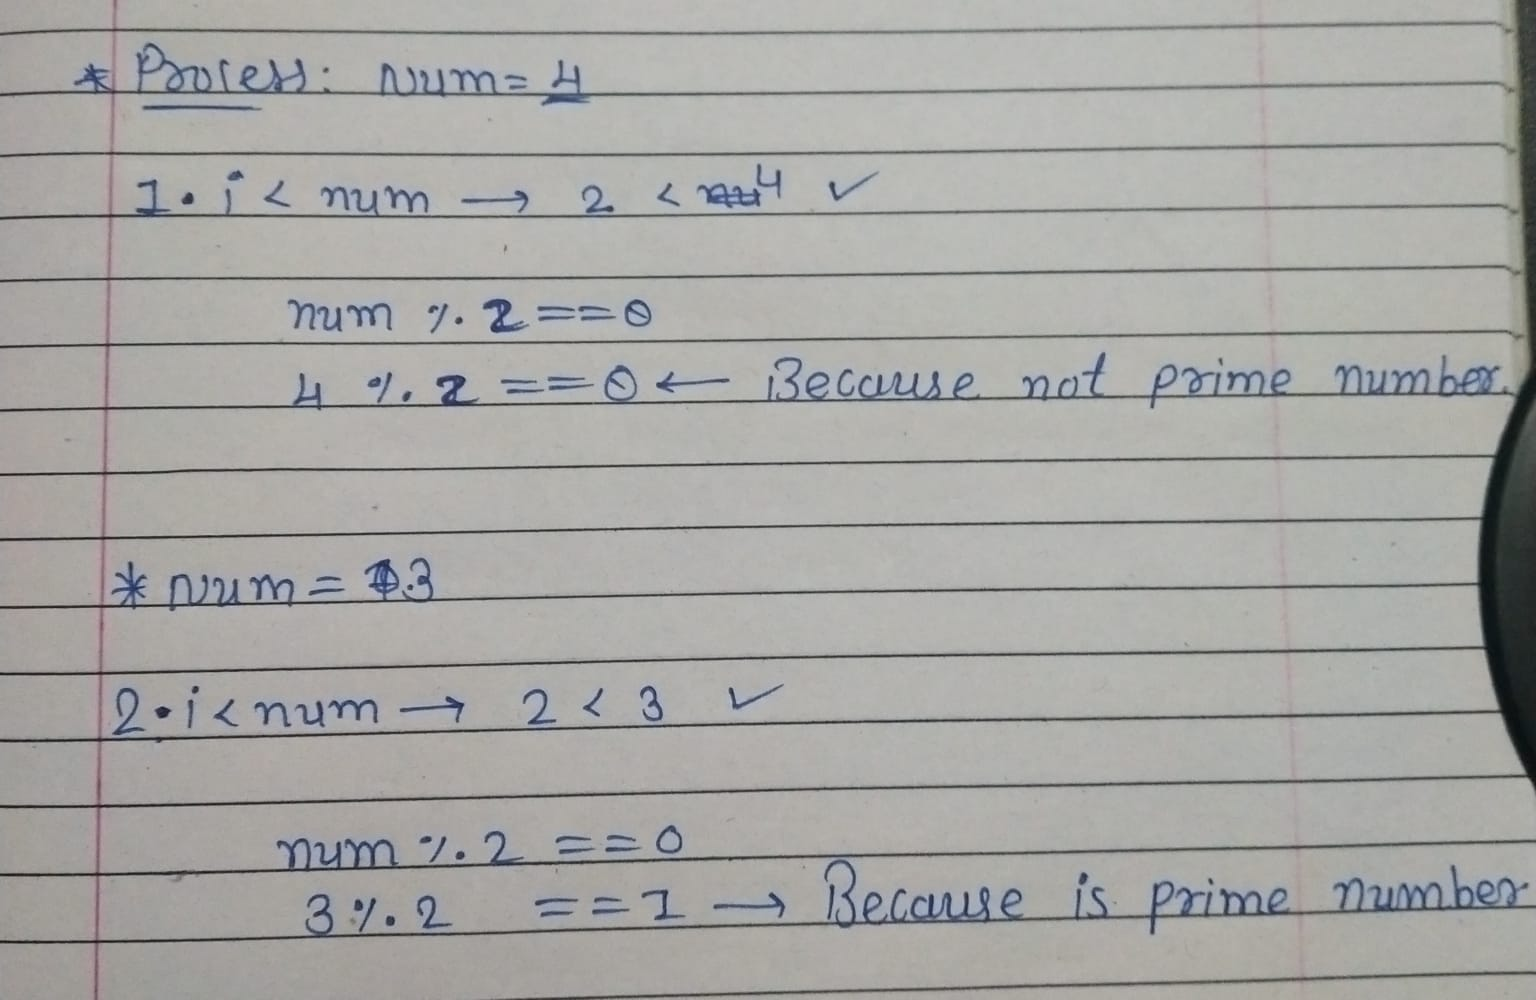 * Process: Num = 4
1. i < num → 2 < 4 ✓
num % 2 == 0
4 % 2 == 0 ← Because not prime number.
* Num = 3
2. i < num → 2 < 3 ✓
num % 2 == 0
3 % 2 == 1 → Because is prime number.